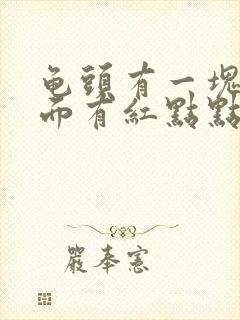 龟頭有一塊
而有紅點點
嚴奉憲